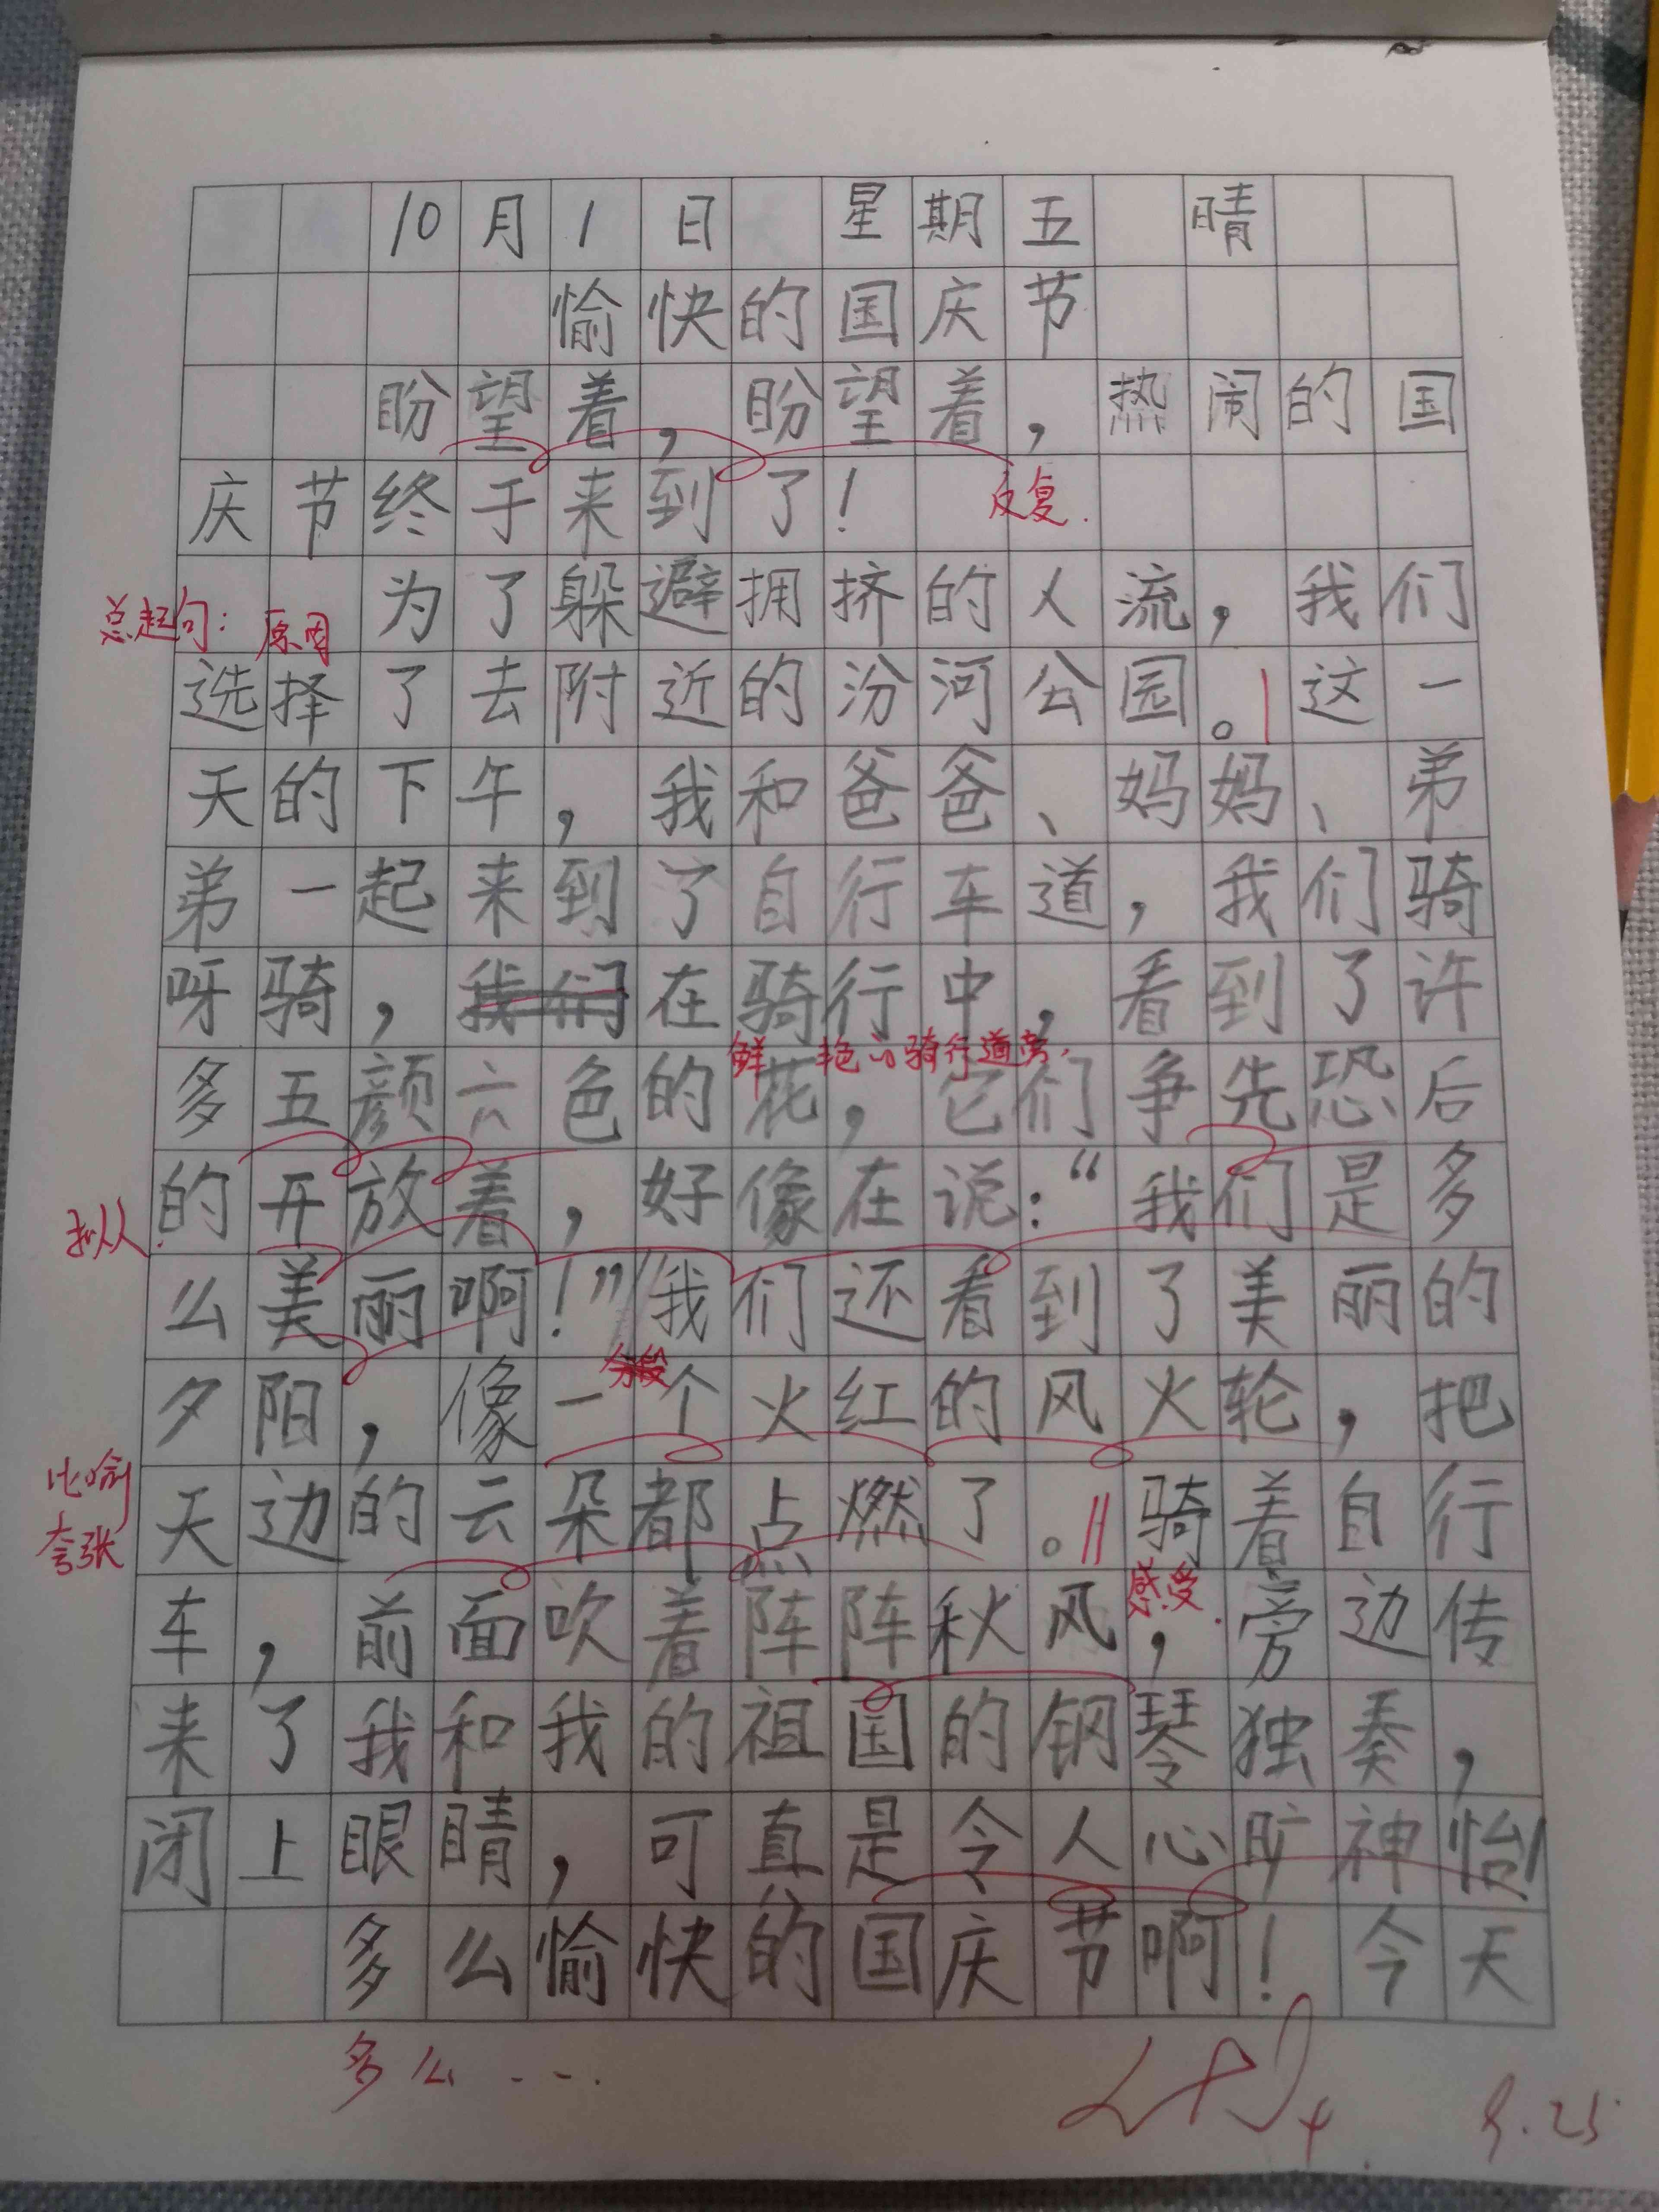 10月1日 星期五 晴
愉快的国庆节
盼望着,盼望着,热闹的国
庆节终于来到了!
反复.
为了躲避拥挤的人流,我们
总起句: 原因
选择了去附近的汾河公园。这一
天的下午,我和爸爸、妈妈、弟
弟一起来到了自行车道,我们骑
呀骑,我们在骑行中,看到了许
鲜艳 骑行道旁
多五颜六色的花,它们争先恐后
的开放着,好像在说:“我们是多
拟人
么美丽啊!”我们还看到了美丽的
分段
夕阳,像一个火红的风火轮,把
比喻
夸张
天边的云朵都点燃了。骑着自行
感受.
车,前面吹着阵阵秋风,旁边传
来了我和我的祖国的钢琴独奏,
闭上眼睛,可真是令人心旷神怡!
多么愉快的国庆节啊!今天
多么...
9.25